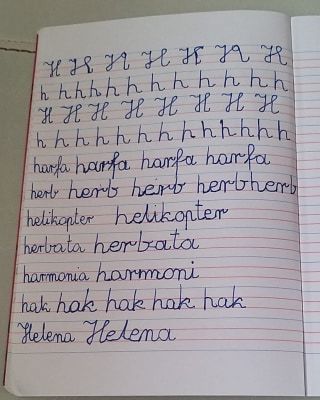 H H H H H H H
h h h h h h h h h h h
H H H H H H H H
h h h h h h h h h h h h h
harfa harfa harfa harfa
herb herb herb herb herb
helikopter helikopter
herbata herbata
harmonia harmoni
hak hak hak hak hak
Helena Helena